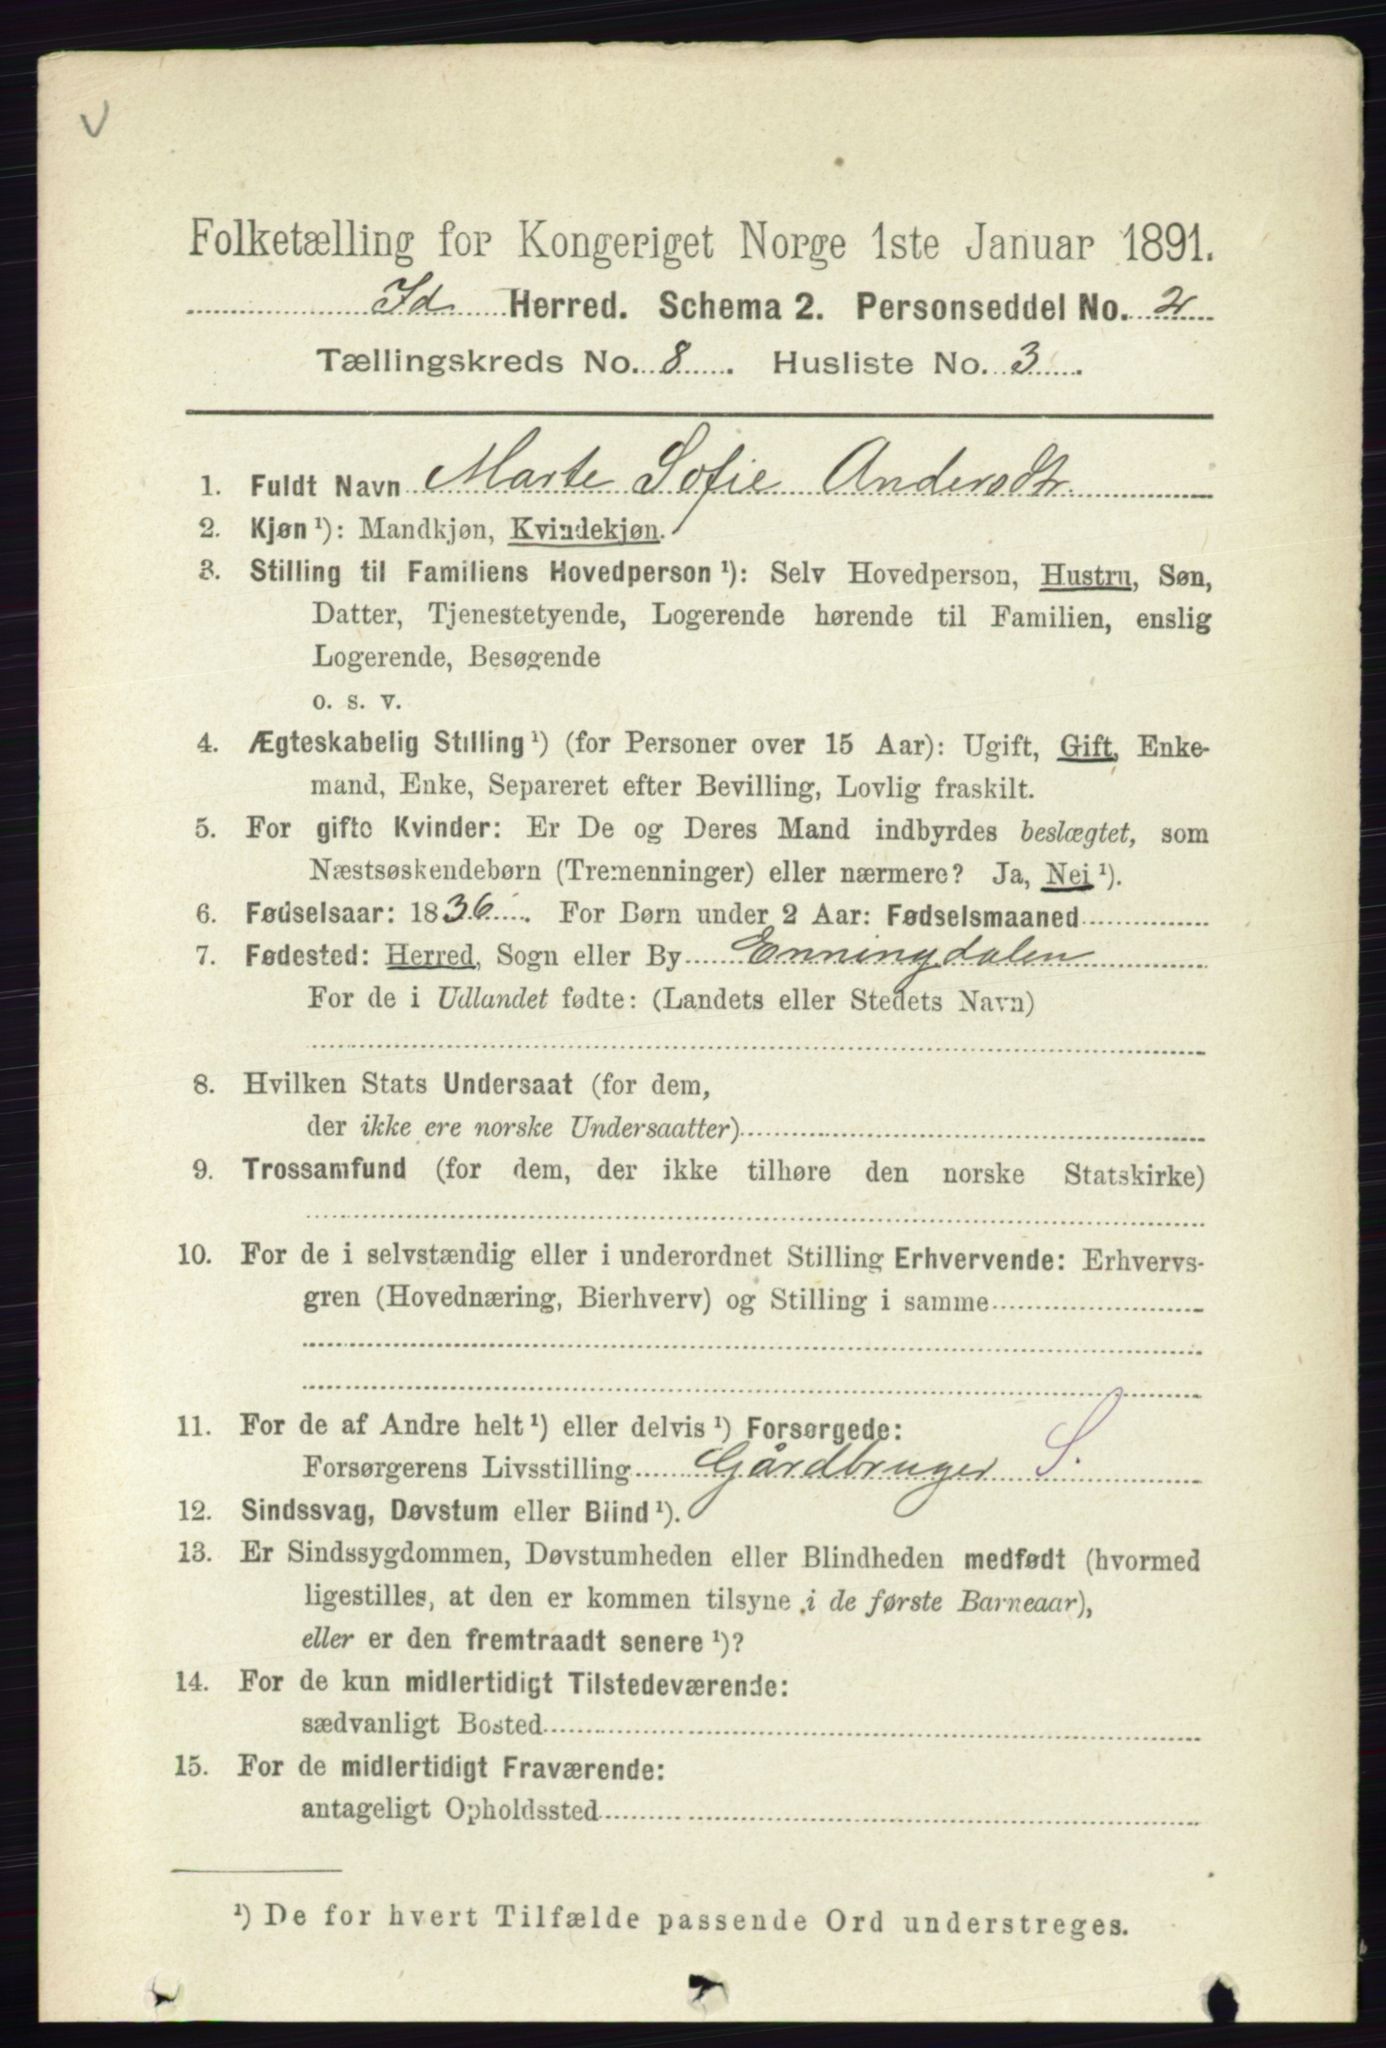 V
Folketælling for Kongeriget Norge 1ste Januar 1891.
Id Herred. Schema 2. Personseddel No. 2
Tællingskreds No. 8. Husliste No. 3.
1. Fuldt Navn Marte Sofie Andersdtr
2. Kjøn¹): Mandkjøn, Kvindekjøn.
3. Stilling til Familiens Hovedperson¹): Selv Hovedperson, Hustru, Søn,
Datter, Tjenestetyende, Logerende hørende til Familien, enslig
Logerende, Besøgende
o. s. v.
4. Ægteskabelig Stilling¹) (for Personer over 15 Aar): Ugift, Gift, Enke-
mand, Enke, Separeret efter Bevilling, Lovlig fraskilt.
5. For gifte Kvinder: Er De og Deres Mand indbyrdes beslægtet, som
Næstsøskendebørn (Tremenninger) eller nærmere? Ja, Nei¹).
6. Fødselsaar: 1836. For Børn under 2 Aar: Fødselsmaaned
7. Fødested: Herred, Sogn eller By Enningdalen
For de i Udlandet fødte: (Landets eller Stedets Navn)
8. Hvilken Stats Undersaat (for dem,
der ikke ere norske Undersaatter)
9. Trossamfund (for dem, der ikke tilhøre den norske Statskirke)
10. For de i selvstændig eller i underordnet Stilling Erhvervende: Erhvervs-
gren (Hovednæring, Bierhverv) og Stilling i samme
11. For de af Andre helt¹) eller delvis¹) Forsørgede:
Forsørgerens Livsstilling Gårdbruger S.
12. Sindssvag, Døvstum eller Blind¹).
13. Er Sindssygdommen, Døvstumheden eller Blindheden medfødt (hvormed
ligestilles, at den er kommen tilsyne i de første Barneaar),
eller er den fremtraadt senere¹)?
14. For de kun midlertidigt Tilstedeværende:
sædvanligt Bosted
15. For de midlertidigt Fraværende:
antageligt Opholdssted
¹) De for hvert Tilfælde passende Ord understreges.